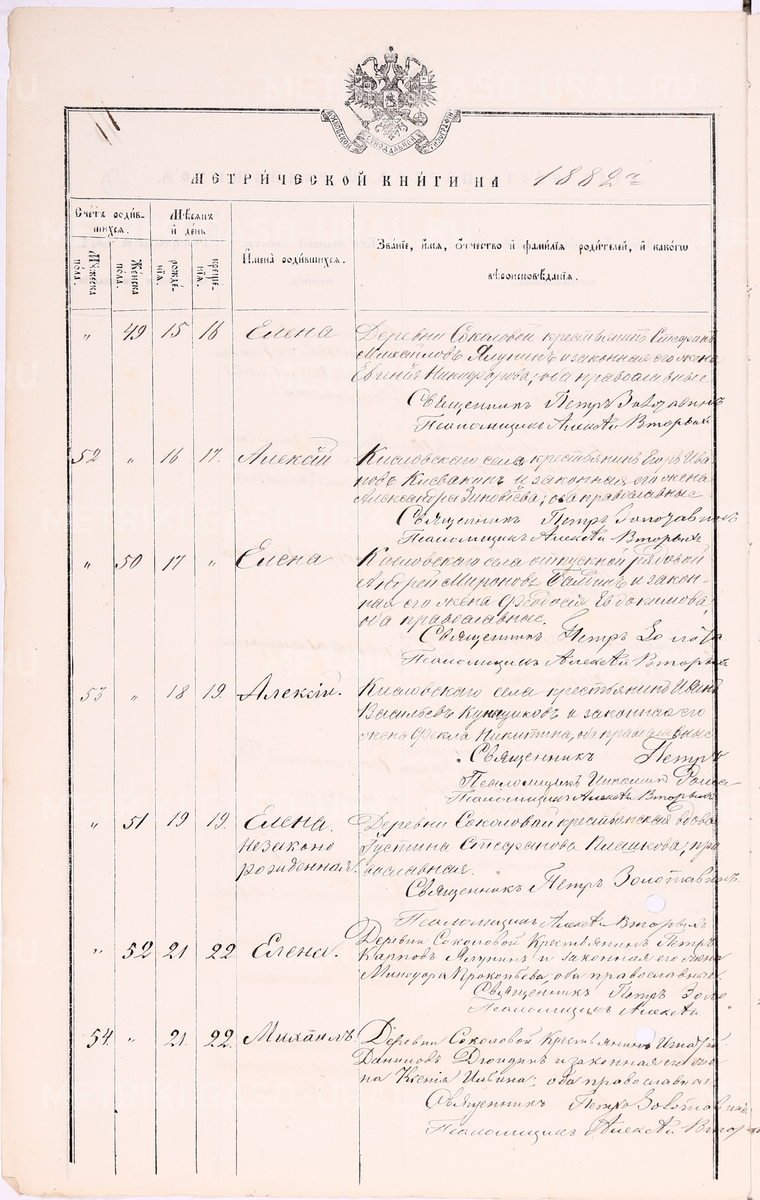 МЕТРИЧЕСКОЙ КНИГИ НА 1882 й
Счетъ родившихся.
Мѣсяцъ и день
Имена родившихся.
Званіе, имя, отчество и фамилія родителей, и какого
вѣроисповѣданія.
Мужеска пола.
Женска пола.
рожденія.
крещенія.
" 49 15 16 Елена Деревни Соколовой крестьянинъ Стефанъ
Михайловъ Ялунинъ и законная его жена
Евгенія Никифорова; оба православные
Священникъ Петръ Золотавинъ
Псаломщикъ Алексѣй Вторыхъ
52 " 16 17. Алексій Кисловскаго села крестьянинъ Егоръ Ива
новъ и законная его жена
Александра Зиновіева; оба православные
Священникъ Петръ Золотавинъ
Псаломщикъ Алексѣй Вторыхъ
" 50 17 " Елена Кисловскаго села отпускной рядовой
Андрей Мироновъ и закон-
ная его жена Феодосія Евдокимова,
оба православные.
Священникъ Петръ Золота
Псаломщикъ Алексѣй Вторыхъ
53. " 18 19. Алексій. Кисловскаго села крестьянинъ Иванъ
Васильевъ и законная его
жена Фекла Никитина, оба православные
Священникъ Петръ
Псаломщикъ
Псаломщикъ Алексѣй Вторыхъ
" 51 19 19. Елена. Деревни Соколовой крестьянская вдова
Незаконо Густина Стефанова Плашкова, пра
рожденная. вославная.
Священникъ Петръ Золотавинъ.
Псаломщикъ Алексѣй Вторыхъ
" 52 21 22 Елена. Деревни Соколовой Крестьянинъ Петръ
Карповъ Ялунинъ и законная его жена
Минодора Прокопьева, оба православные.
Священникъ Петръ Золо
Псаломщикъ Алексѣй
54. " 21. 22. Михаилъ. Деревни Соколовой Крестьянинъ Игнатій
Даниловъ и законная его же
на Ксенія Ильина, оба православные
Священникъ Петръ Золотавинъ
Псаломщикъ Алексѣй Втор